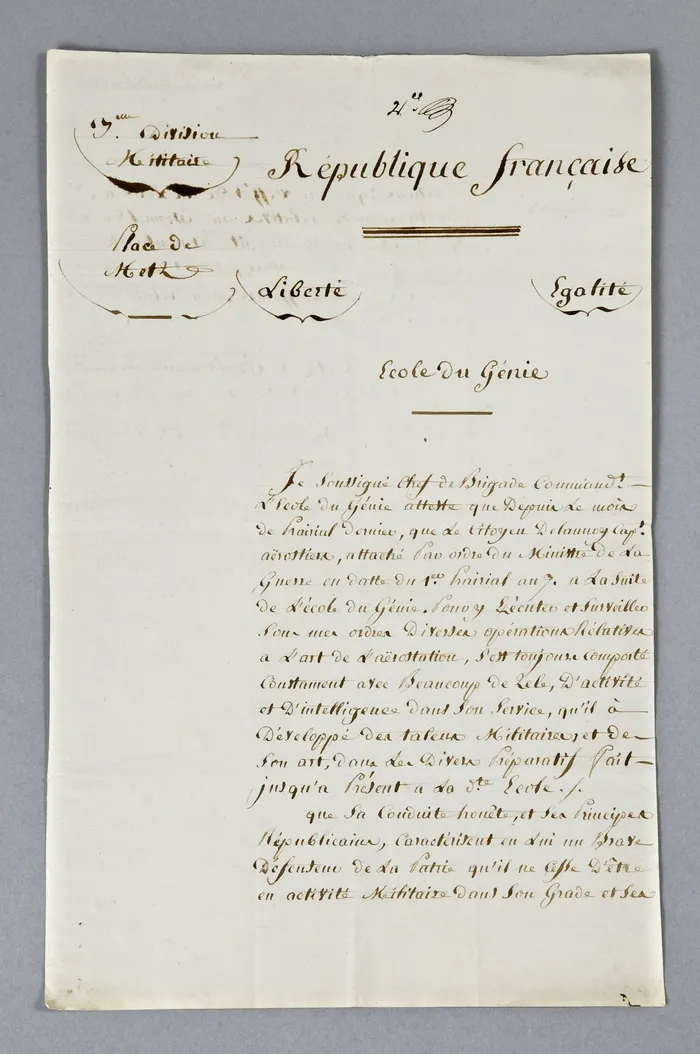 3.me Division
Militaire
République française
Place de
Metz
Liberté
Egalité
Ecole du Génie
Je Soussigné Chef de Brigade Command.t
L'Ecole du Génie atteste que Depuis Le mois
de Prairial dernier, que Le Citoyen Delaunoy Cap.e
aërostiers, attaché Par ordre du Ministre de La
Guerre en datte du 1.er Prairial an 7. a La Suite
de L'école du Génie Pour y Exécuter et Surveiller
Sous mes ordres Diverses opérations Rélatives
a L'art de L'aërostation, s'est toujours Comporté
Constament avec Beaucoup de Zele, D'activité
et D'intelligence dans Son Service, qu'il à
Développé des talens Militaires et de
Son art, dans Les Divers Préparatifs fait
jusqu'a Présent a La d.te Ecole ./.
que Sa Conduite honête, et Ses Principes
Républicains, Caractérisent en Lui un Brave
Défenseur de La Patrie qu'il ne Cesse D'être
en activité Militaire dans Son Grade et Ses